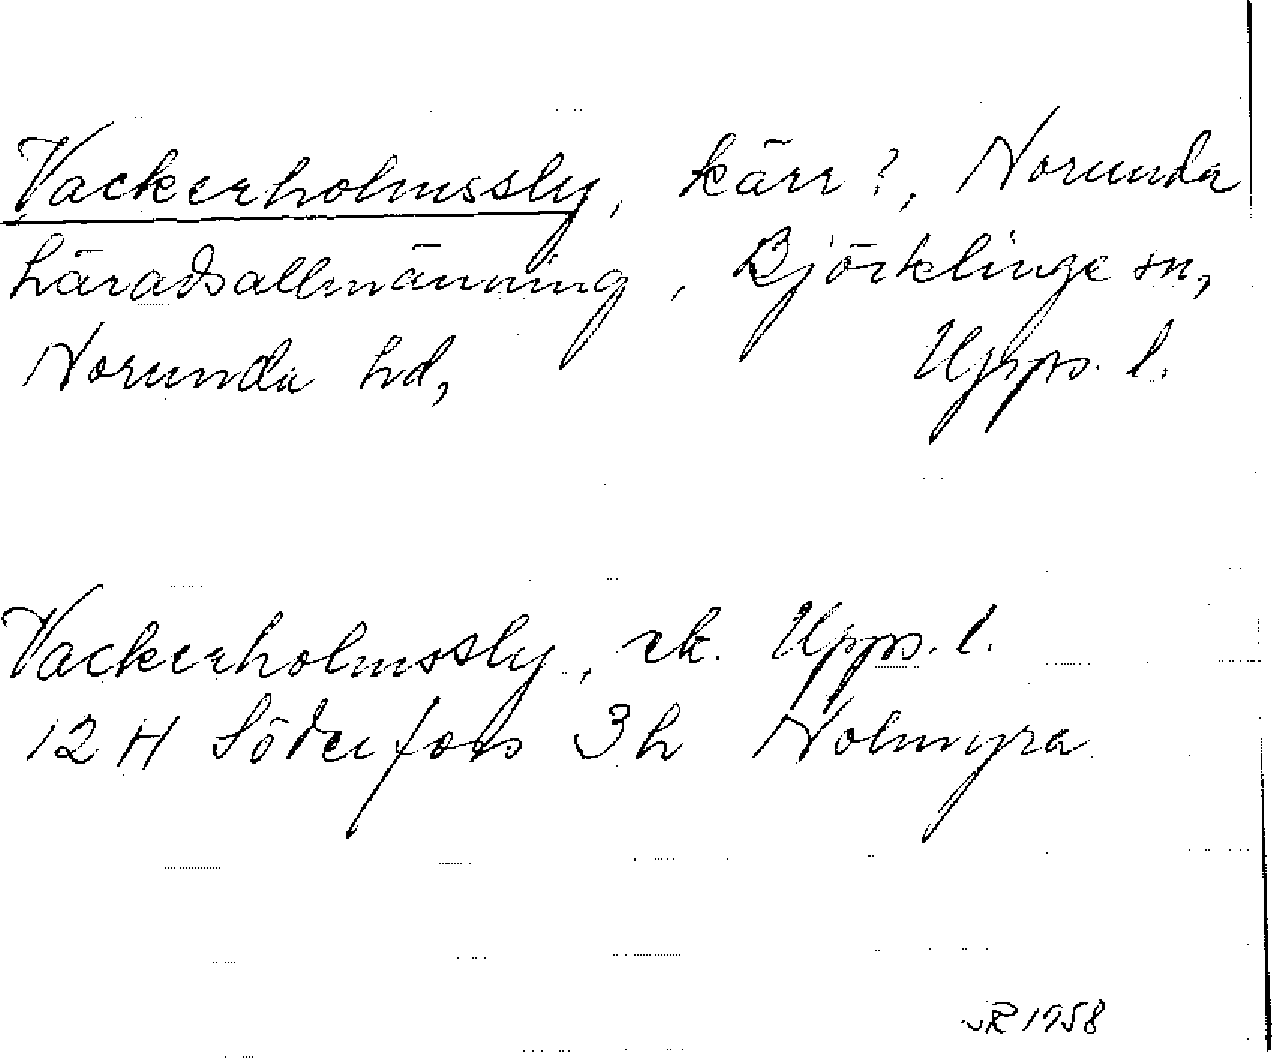 Vackerholmssly, kärr?, Norunda
häradsallmänning, Björklinge sn,
Norunda hd, Upps. l.
Vackerholmssly, ek. Upps. l.
12 H Söderfors 3h Nolmyra
1958